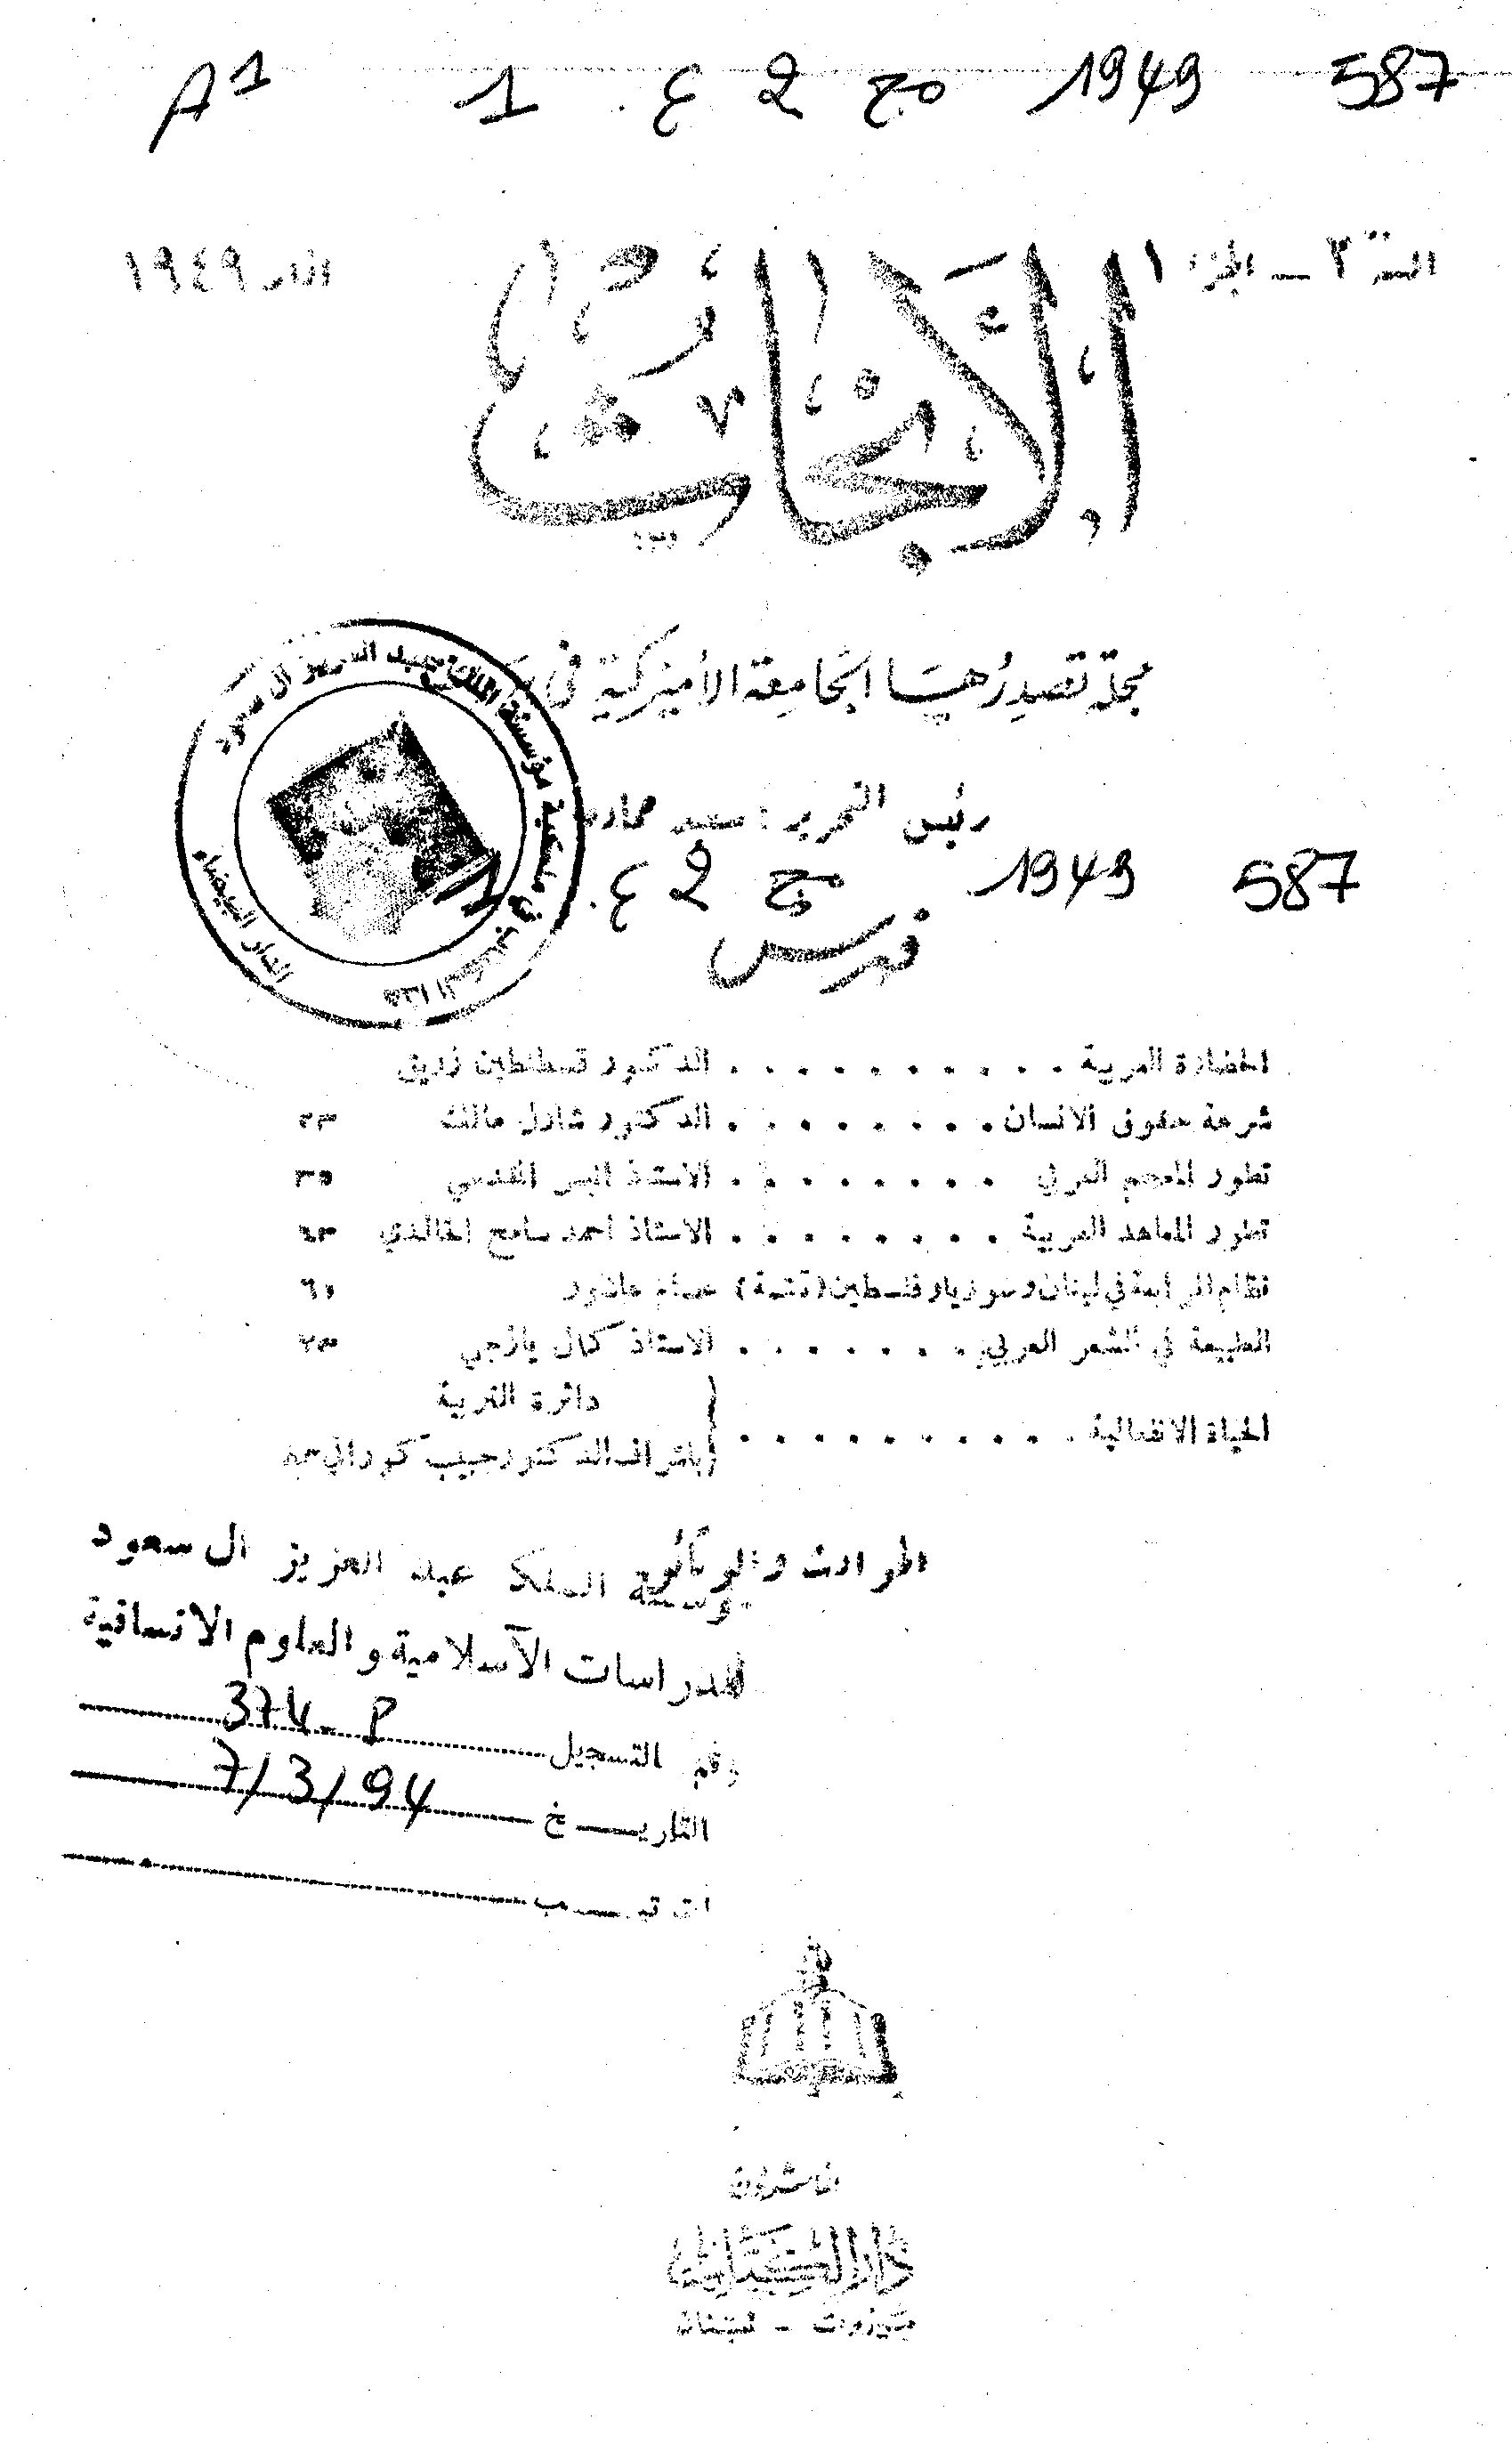 587 1949 مج 2 ع. 1 A1
السنة ٢ – الجزء ١
اذار ١٩٤٩
الأبحاث
مجلة تصدرها الجامعة الأميركية في
رئيس التحرير : سعيد حماده
587 1949 مج 2 ع. 1
مكتبة مؤسسة الملك عبد العزيز ال سعود
الدار البيضاء
فهرس
الحضارة العربية . . . . . . . . . . . الدكتور قسطنطين زريق
شرعة حقوق الانسان . . . . . . . . الدكتور شارل مالك ٢٣
تطور المعجم العربي . . . . . . . . الاستاذ انيس المقدسي ٣٥
تطور المعاهد العربية . . . . . . . . الاستاذ احمد سامح الخالدي ٤٣
نظام المرابعة في لبنان وسوريا وفلسطين (تتمة) عصام عاشور
الطبيعة في الشعر العربي . . . . . . . الاستاذ كمال يازجي ٧٣
الحياة الانفعالية . . . . . . . . . . دائرة التربية
باشراف الدكتور حبيب كوراني
مؤسسة الملك عبد العزيز ال سعود
للدراسات الاسلامية والعلوم الانسانية
رقم التسجيل 374-P
التاريـــخ 7/3/94
الناشرون
دار الكتاب
بيروت - لبنان